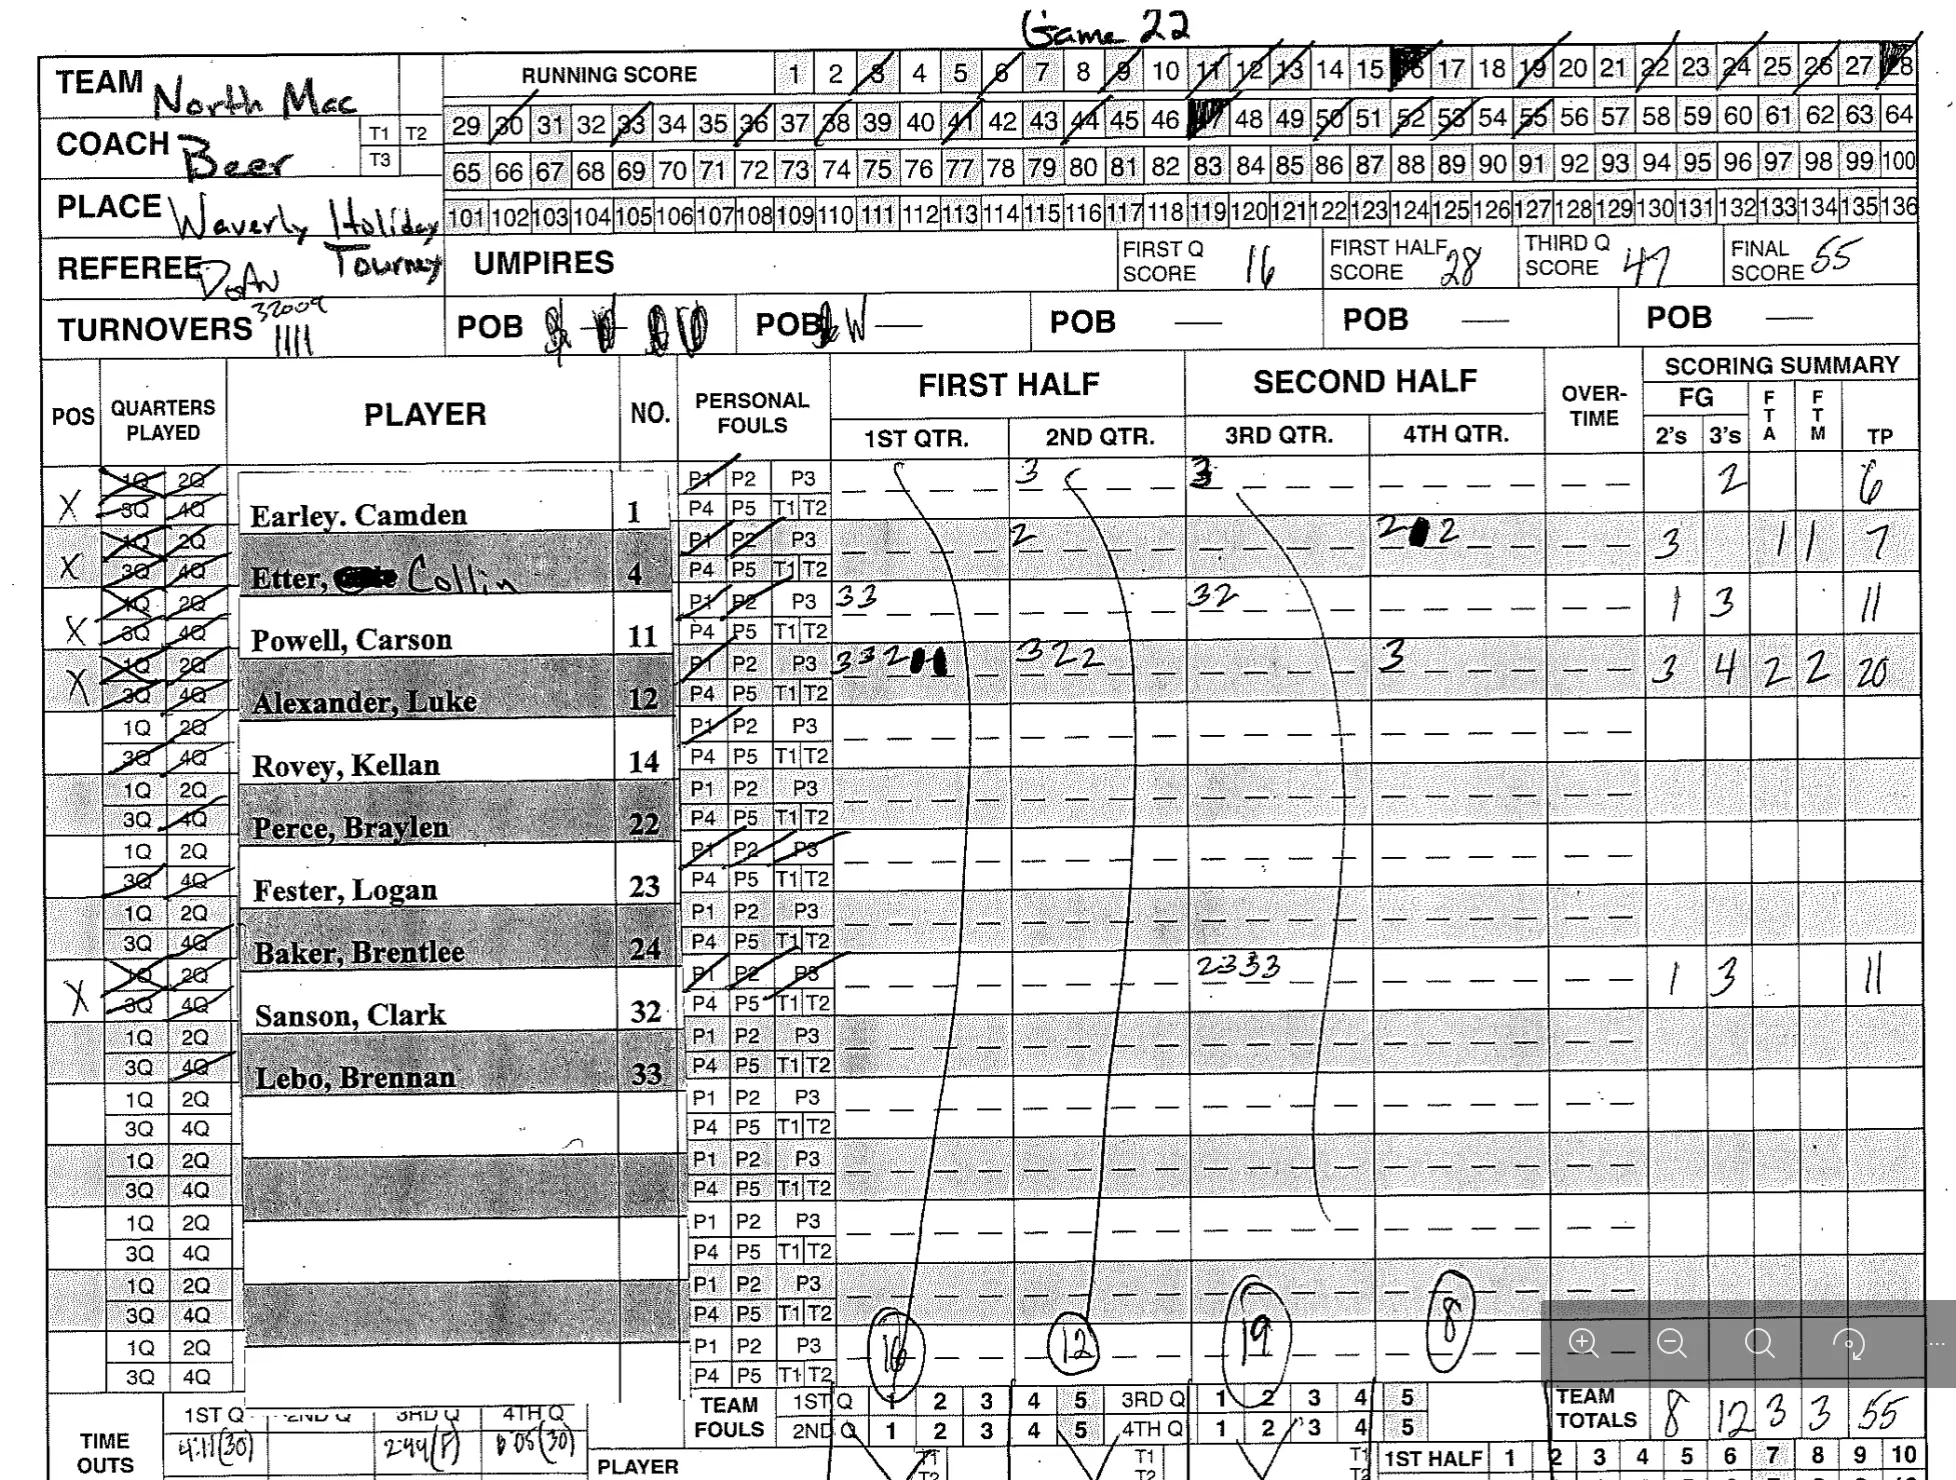 Game 22
TEAM North Mac
RUNNING SCORE 1 2 3 4 5 6 7 8 9 10 11 12 13 14 15 16 17 18 19 20 21 22 23 24 25 26 27 28
29 30 31 32 33 34 35 36 37 38 39 40 41 42 43 44 45 46 48 49 50 51 52 53 54 55 56 57 58 59 60 61 62 63 64
COACH Beer T1 T2 T3
65 66 67 68 69 70 71 72 73 74 75 76 77 78 79 80 81 82 83 84 85 86 87 88 89 90 91 92 93 94 95 96 97 98 99 100
PLACE Waverly Holiday Tourney
101 102 103 104 105 106 107 108 109 110 111 112 113 114 115 116 117 118 119 120 121 122 123 124 125 126 127 128 129 130 131 132 133 134 135 136
REFEREE
UMPIRES
FIRST Q SCORE 16
FIRST HALF SCORE 28
THIRD Q SCORE 47
FINAL SCORE 55
TURNOVERS
POB POB POB POB POB
POS QUARTERS PLAYED PLAYER NO. PERSONAL FOULS FIRST HALF SECOND HALF OVER-TIME SCORING SUMMARY
1ST QTR. 2ND QTR. 3RD QTR. 4TH QTR. FG 2's 3's FTA FTM TP
X 1Q 2Q 3Q 4Q Earley. Camden 1 P1 P2 P3 P4 P5 T1 T2 3 3 2 6
X 1Q 2Q 3Q 4Q Etter, Collin 4 P1 P2 P3 P4 P5 T1 T2 2 2 2 3 1 1 7
X 1Q 2Q 3Q 4Q Powell, Carson 11 P1 P2 P3 P4 P5 T1 T2 33 32 1 3 11
X 1Q 2Q 3Q 4Q Alexander, Luke 12 P1 P2 P3 P4 P5 T1 T2 332 322 3 3 4 2 2 20
1Q 2Q 3Q 4Q Rovey, Kellan 14 P1 P2 P3 P4 P5 T1 T2
1Q 2Q 3Q 4Q Perce, Braylen 22 P1 P2 P3 P4 P5 T1 T2
1Q 2Q 3Q 4Q Fester, Logan 23 P1 P2 P3 P4 P5 T1 T2
1Q 2Q 3Q 4Q Baker, Brentlee 24 P1 P2 P3 P4 P5 T1 T2
X 1Q 2Q 3Q 4Q Sanson, Clark 32 P1 P2 P3 P4 P5 T1 T2 2333 1 3 11
1Q 2Q 3Q 4Q Lebo, Brennan 33 P1 P2 P3 P4 P5 T1 T2
1Q 2Q 3Q 4Q P1 P2 P3 P4 P5 T1 T2
1Q 2Q 3Q 4Q P1 P2 P3 P4 P5 T1 T2
1Q 2Q 3Q 4Q P1 P2 P3 P4 P5 T1 T2
1Q 2Q 3Q 4Q P1 P2 P3 P4 P5 T1 T2
1Q 2Q 3Q 4Q P1 P2 P3 P4 P5 T1 T2
16 12 19 8
TEAM FOULS 1ST Q 1 2 3 4 5 3RD Q 1 2 3 4 5
2ND Q 1 2 3 4 5 4TH Q 1 2 3 4 5
TEAM TOTALS 8 12 3 3 55
TIME OUTS 1ST Q 2ND Q 3RD Q 4TH Q
4:11(30) 2:44(F) 0:05(30)
PLAYER T1 T2 T1 T2 T1 T2
1ST HALF 1 2 3 4 5 6 7 8 9 10